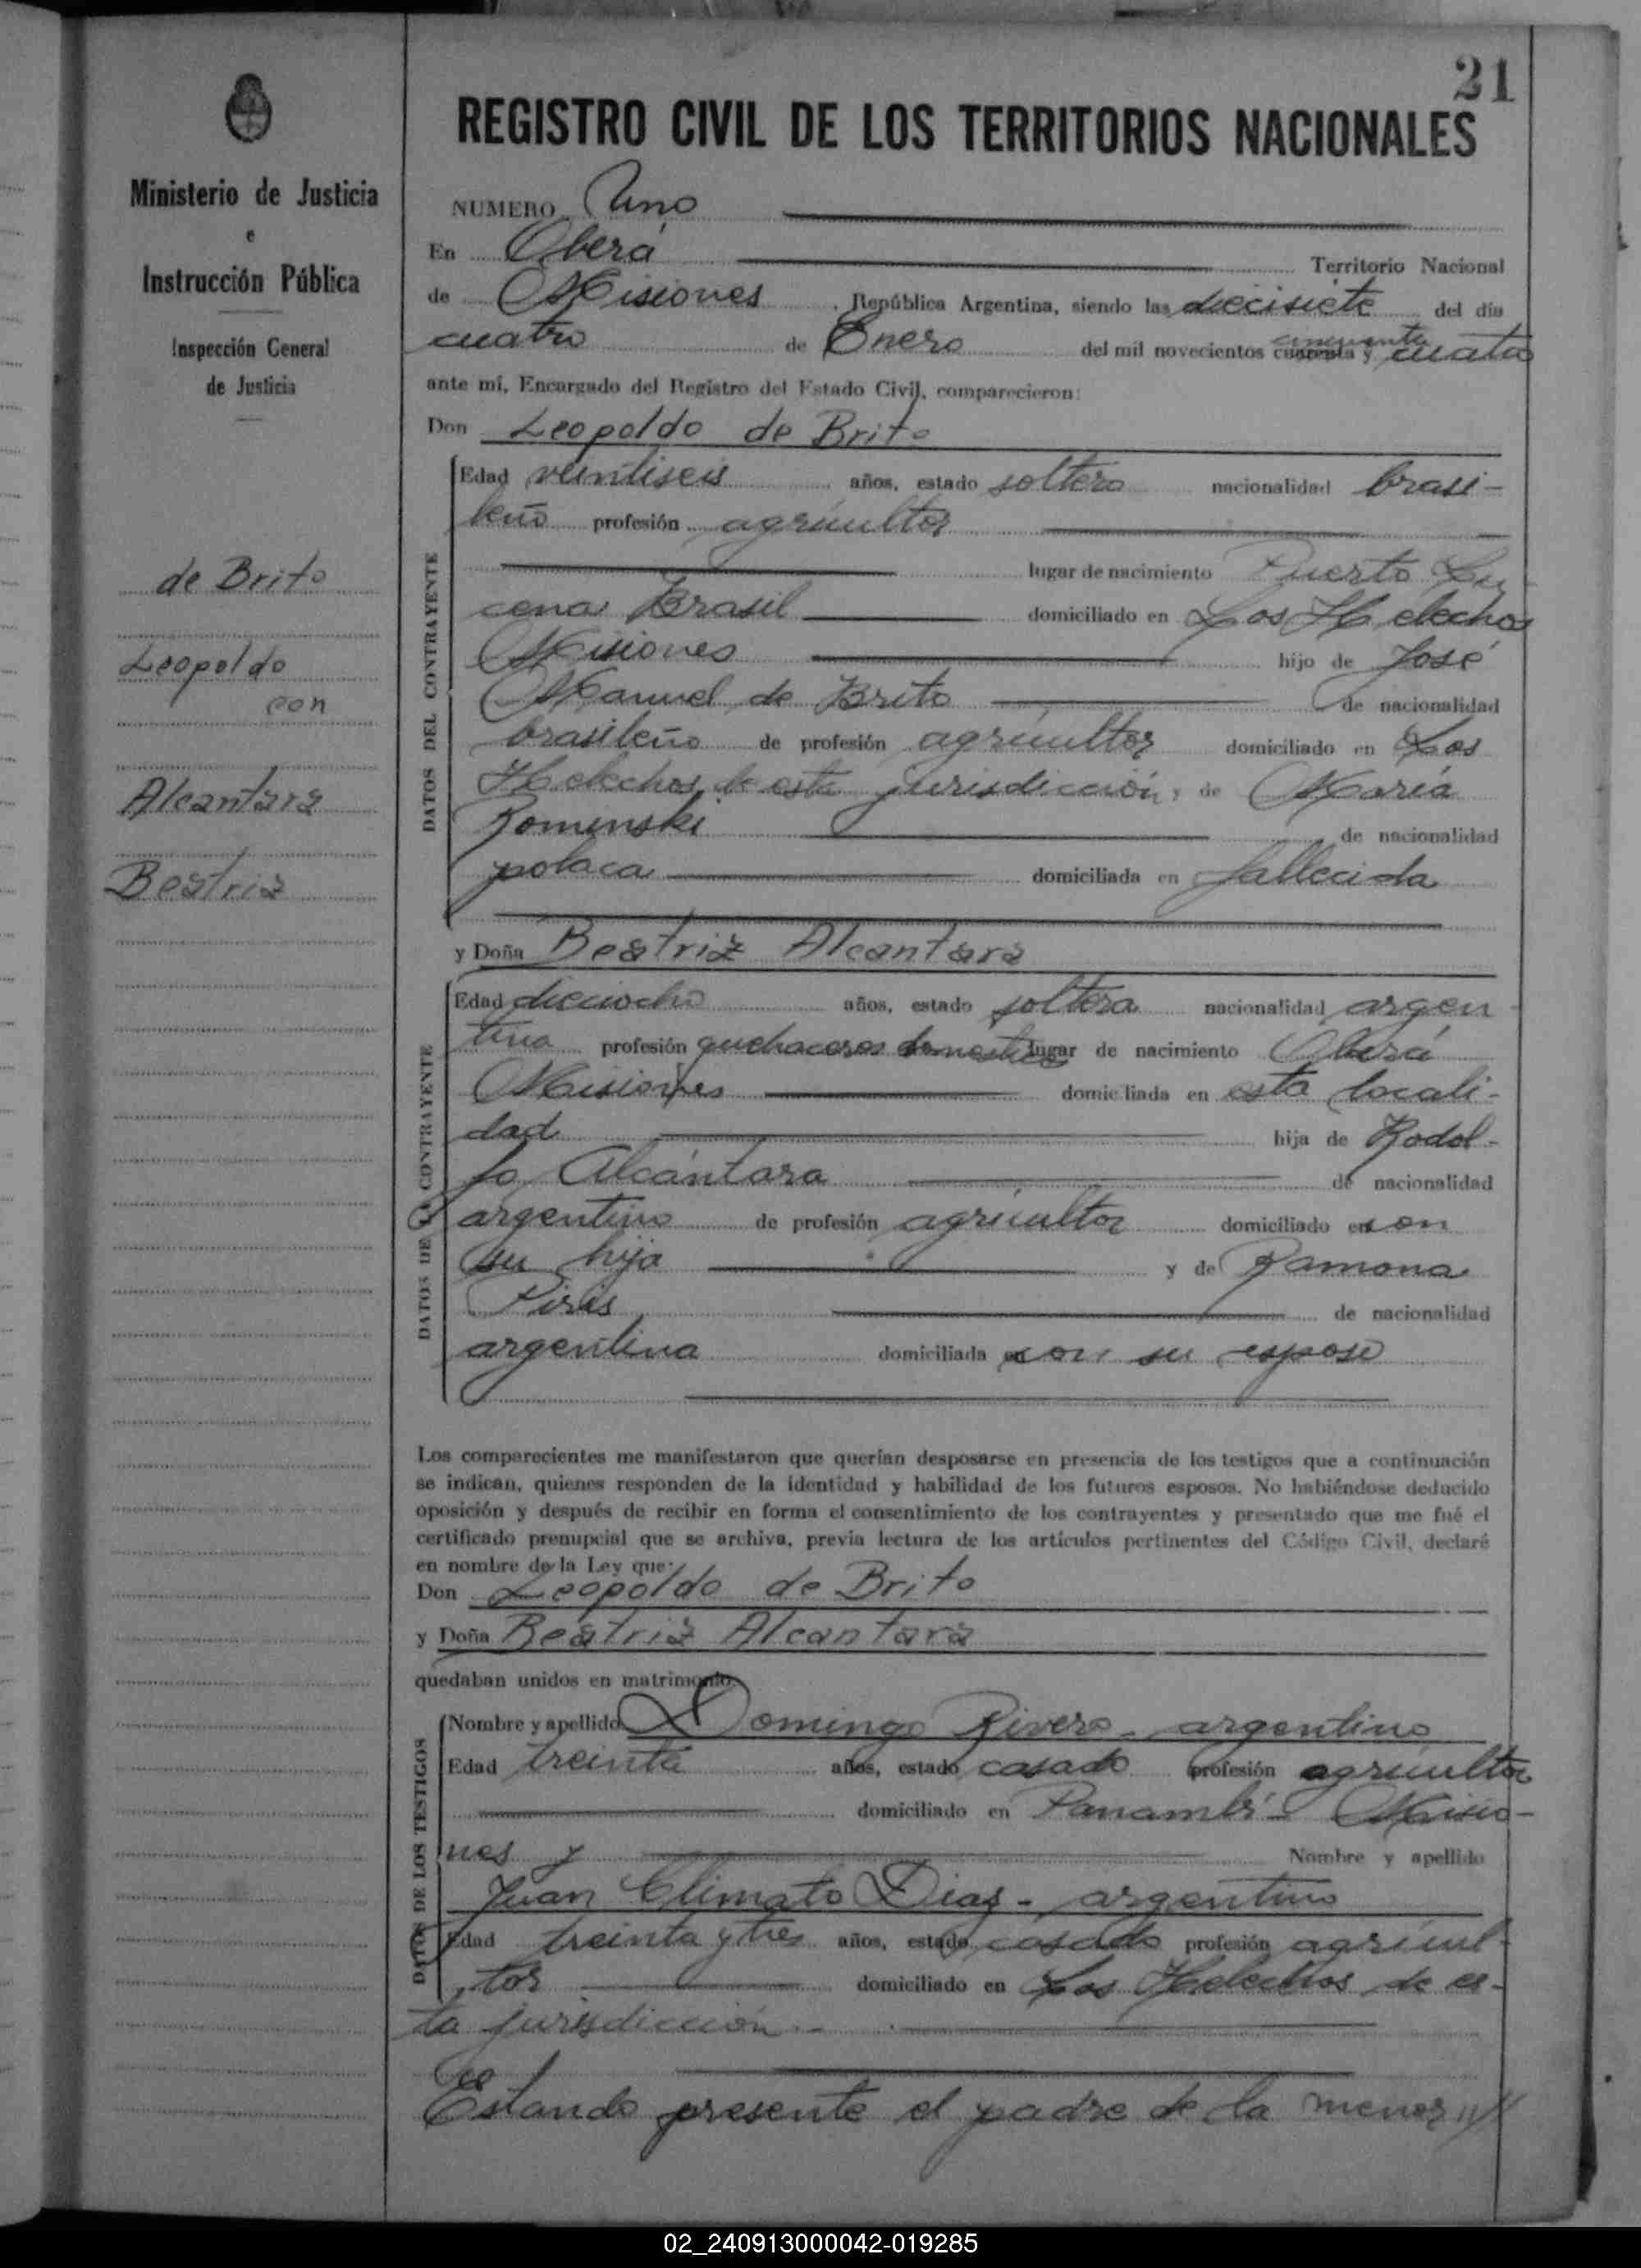 21
REGISTRO CIVIL DE LOS TERRITORIOS NACIONALES
Ministerio de Justicia
e
Instrucción Pública
Inspección General
de Justicia
de Brito
Leopoldo
con
Alcantara
Beatriz
NUMERO Uno
En Oberá Territorio Nacional
de Misiones , República Argentina, siendo las diecisiete del día
cuatro de Enero del mil novecientos cuarenta cincuenta y cuatro
ante mí, Encargado del Registro del Estado Civil, comparecieron:
Don Leopoldo de Brito
DATOS DEL CONTRAYENTE
Edad veintiseis años, estado soltero nacionalidad brasi-
leño profesión agricultor
lugar de nacimiento Puerto Lu
cena Brasil domiciliado en Los Helechos
Misiones hijo de José
Manuel de Brito de nacionalidad
brasileño de profesión agricultor domiciliado en Los
Helechos de esta jurisdicción y de María
Rominski de nacionalidad
polaca domiciliada en fallecida
y Doña Beatriz Alcantara
DATOS DE LA CONTRAYENTE
Edad dieciocho años, estado soltera nacionalidad argen
tina profesión quehaceres domesticos lugar de nacimiento Oberá
Misiones domiciliada en esta locali-
dad hija de Rodol-
fo Alcántara de nacionalidad
argentino de profesión agricultor domiciliado con
su hija y de Ramona
Piris de nacionalidad
argentina domiciliada con su esposo
Los comparecientes me manifestaron que querían desposarse en presencia de los testigos que a continuación
se indican, quienes responden de la identidad y habilidad de los futuros esposos. No habiéndose deducido
oposición y después de recibir en forma el consentimiento de los contrayentes y presentado que me fué el
certificado prenupcial que se archiva, previa lectura de los artículos pertinentes del Código Civil, declaré
en nombre de la Ley que:
Don Leopoldo de Brito
y Doña Beatriz Alcantara
quedaban unidos en matrimonio.
DATOS DE LOS TESTIGOS
Nombre y apellido Domingo Rivero - argentino
Edad treinta años, estado casado profesión agricultor
domiciliado en Panambí - Misio-
nes y Nombre y apellido
Juan Climato Diaz - argentino
Edad treinta y tres años, estado casado profesión agricul-
tor domiciliado en Los Helechos de es-
ta jurisdicción.-
Estando presente el padre de la menor
02_240913000042-019285